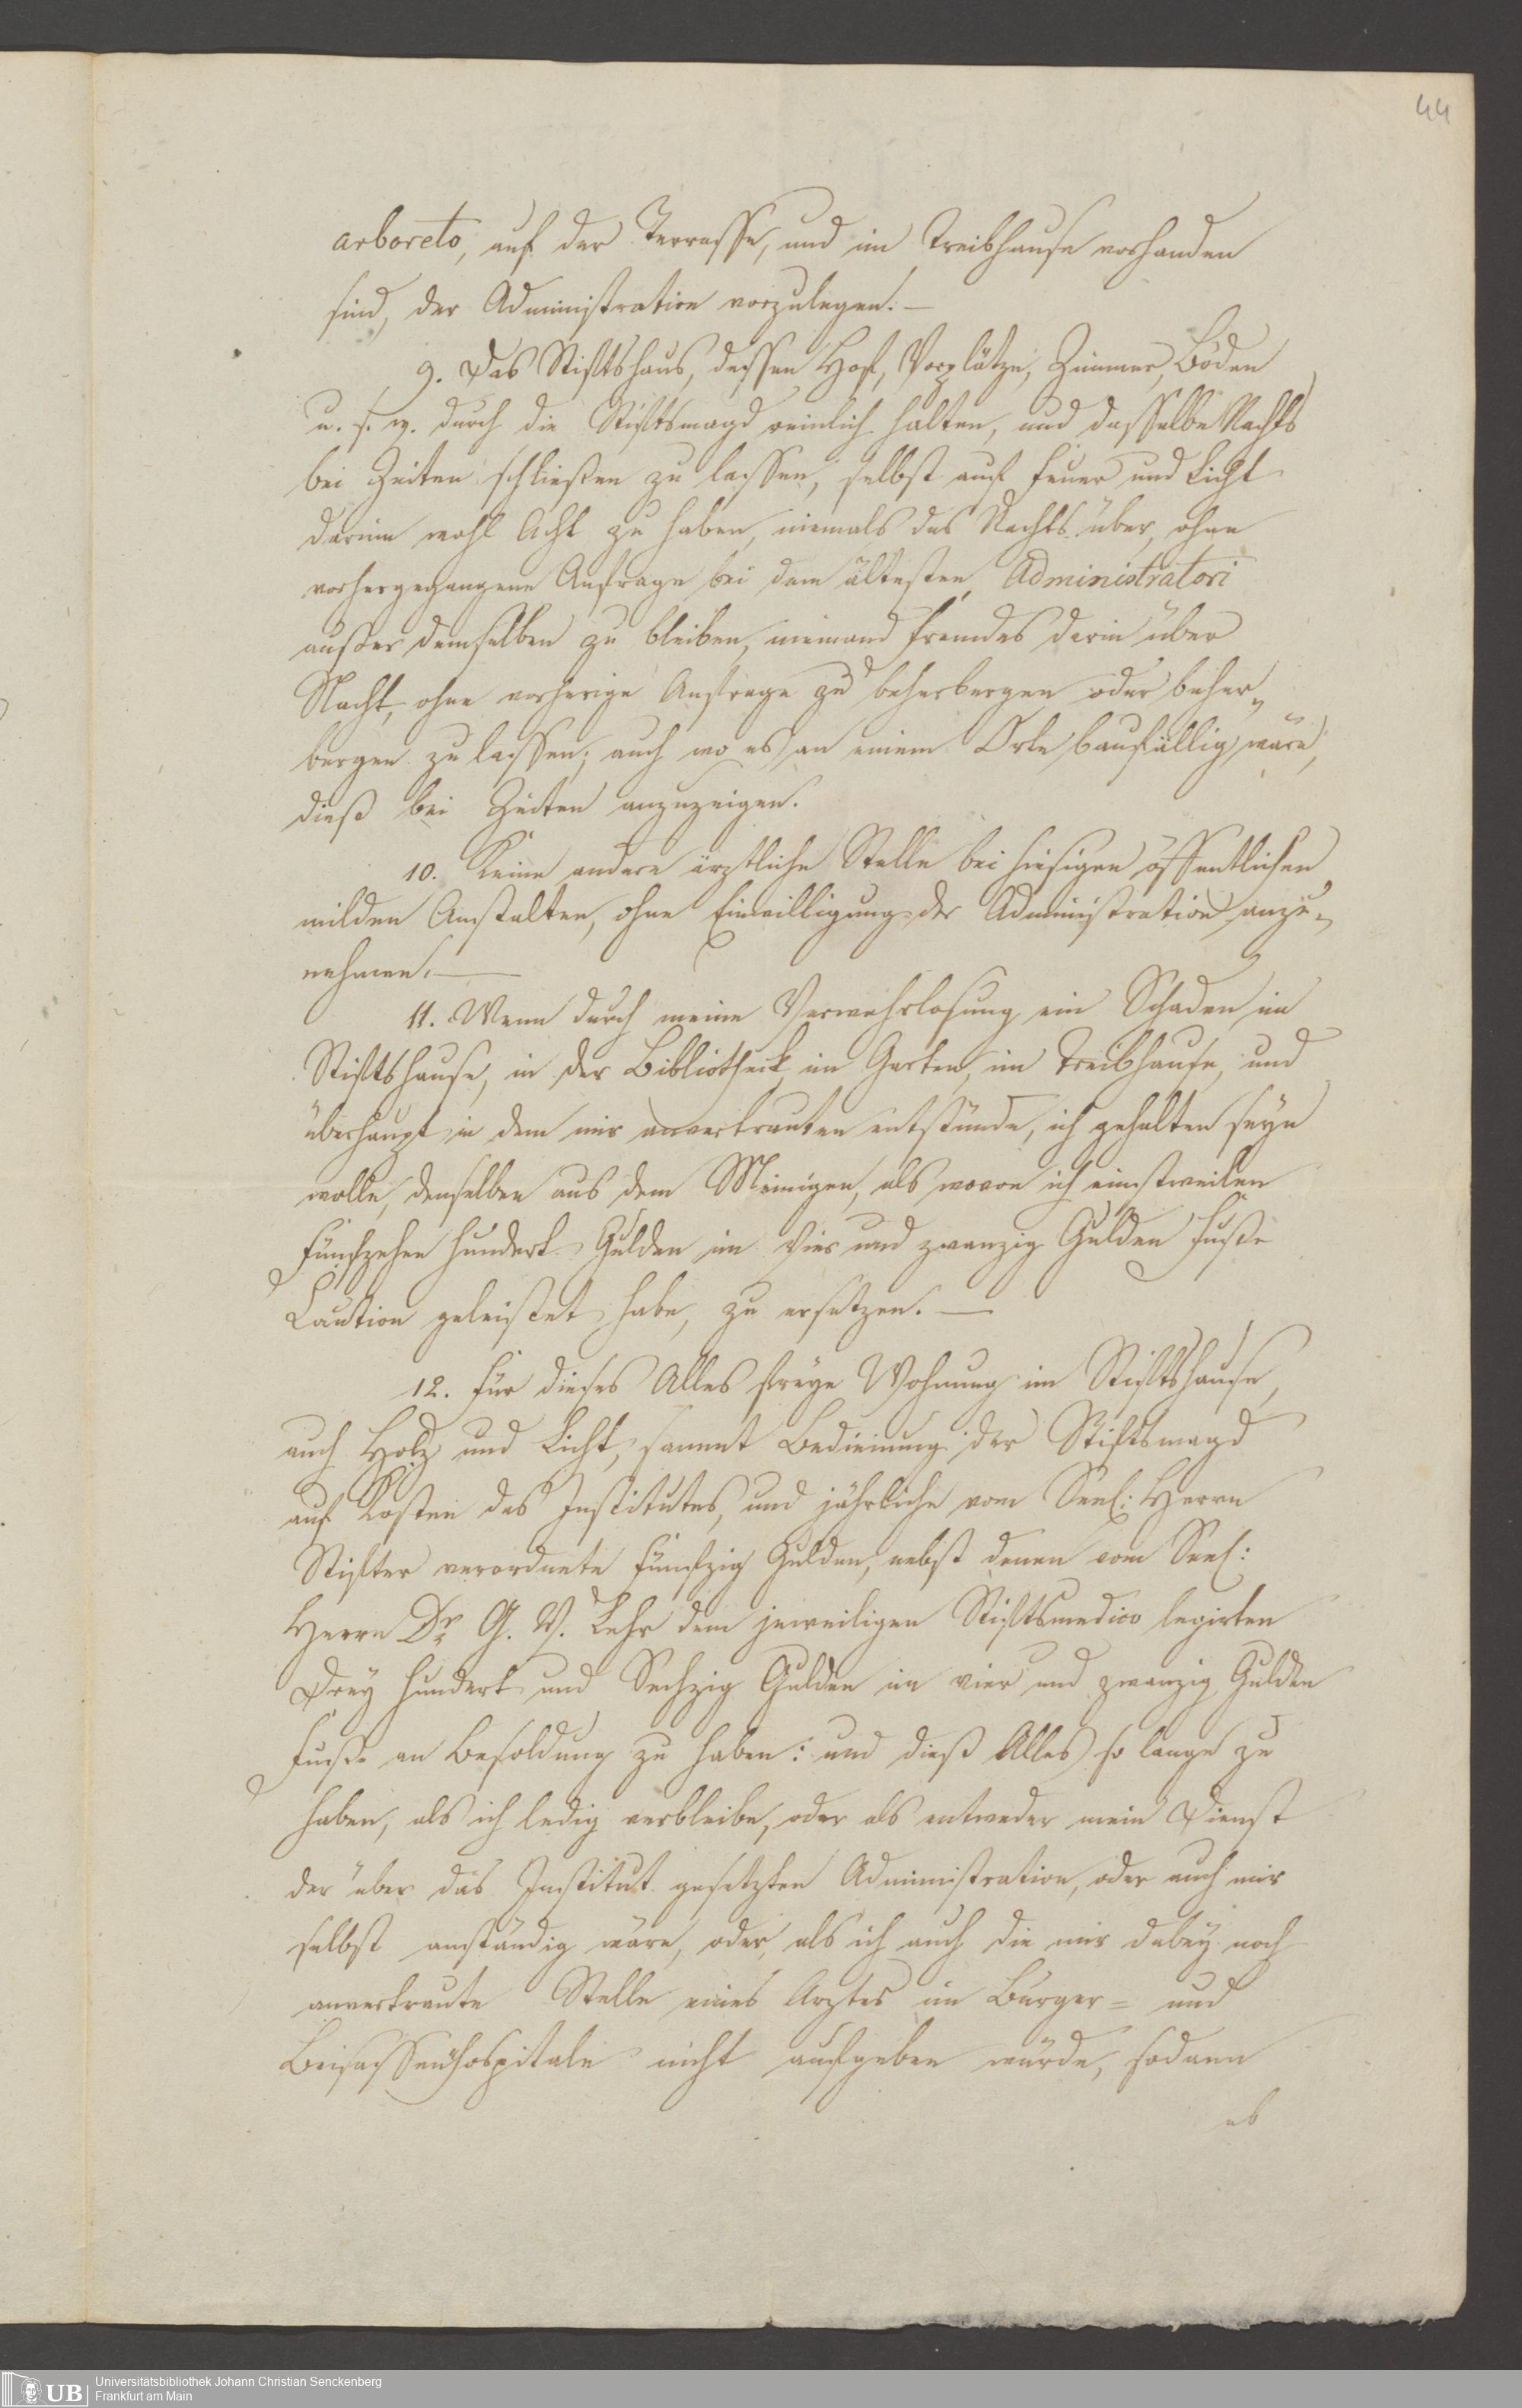 44
arboreto, auf der Terrasse, und im Treibhause vorhanden
sind, der Administration vorzulegen. —
9. Das Stiftshaus, dessen Hof, Vorplätze, Zimmer, Böden
u. s. w. durch die Stiftsmagd reinlich halten, und dasselbe Nachts
bei Zeiten schließen zu lassen, selbst auf Feuer und Licht
darinn wohl Acht zu haben, niemals des Nachts über, ohne
vorhergegangene Anfrage bei dem ältesten Administratori
außer demselben zu bleiben, niemand fremdes darin über
Nacht, ohne vorherige Anfrage zu beherbergen oder beher-
bergen zu lassen; auch wo es an einem Orte baufällig wäre,
dieß bei Zeiten anzuzeigen.
10. Keine andere ärztliche Stelle bei hiesigen öffentlichen
milden Anstalten, ohne Einwilligung der Administration anzu-
nehmen. —
11. Wenn durch meine Verwahrlosung ein Schaden im
Stiftshause, in der Bibliotheck, im Garten, im Treibhause, und
überhaupt in dem mir anvertrauten entstünde, ich gehalten seyn
wolle, denselben aus dem Meinigen, als wovon ich einstweilen
Fünfzehen hundert Gulden im Vier und zwanzig Gulden Fuße
Caution geleistet habe, zu ersetzen. —
12. Für dieses Alles freye Wohnung im Stiftshause,
auch Holz und Licht, sammt Bedienung der Stiftsmagd
auf Kosten des Institutes, und jährliche vom Seel: Herrn
Stifter verordnete fünfzig Gulden, nebst denen vom Seel:
Herrn Dr. G. V. Lehr dem jeweiligen Stiftsmedico legirten
Drey hundert und Sechzig Gulden im vier und zwanzig Gulden
Fuße an Besoldung zu haben: und dieß Alles so lange zu
haben, als ich ledig verbleibe, oder als entweder mein Dienst
der über das Institut gesetzten Administration, oder auch mir
selbst anständig wäre, oder als ich auch die mir dabey noch
anvertraute Stelle eines Arztes im Bürger= und
Beisassenhospitale nicht aufgeben würde, sodann
ab
UB
Universitätsbibliothek Johann Christian Senckenberg
Frankfurt am Main